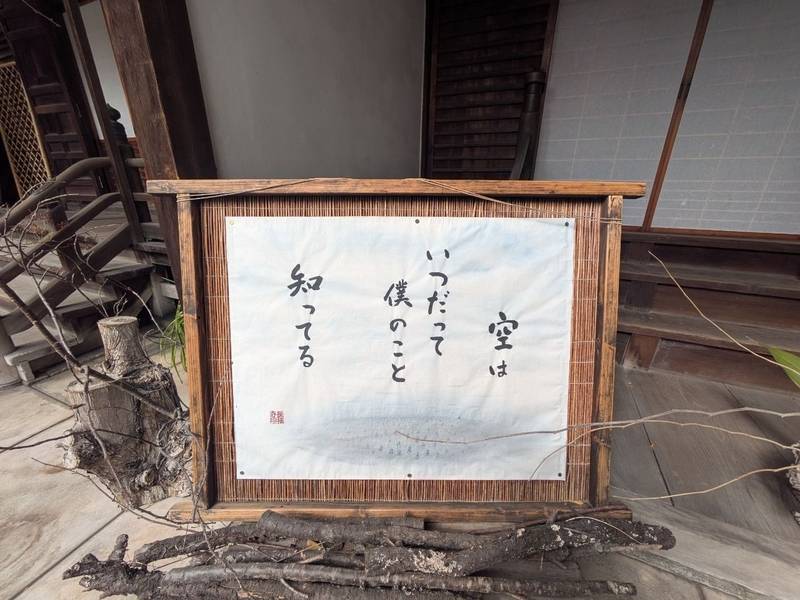 空は
いつだって
僕のこと
知ってる